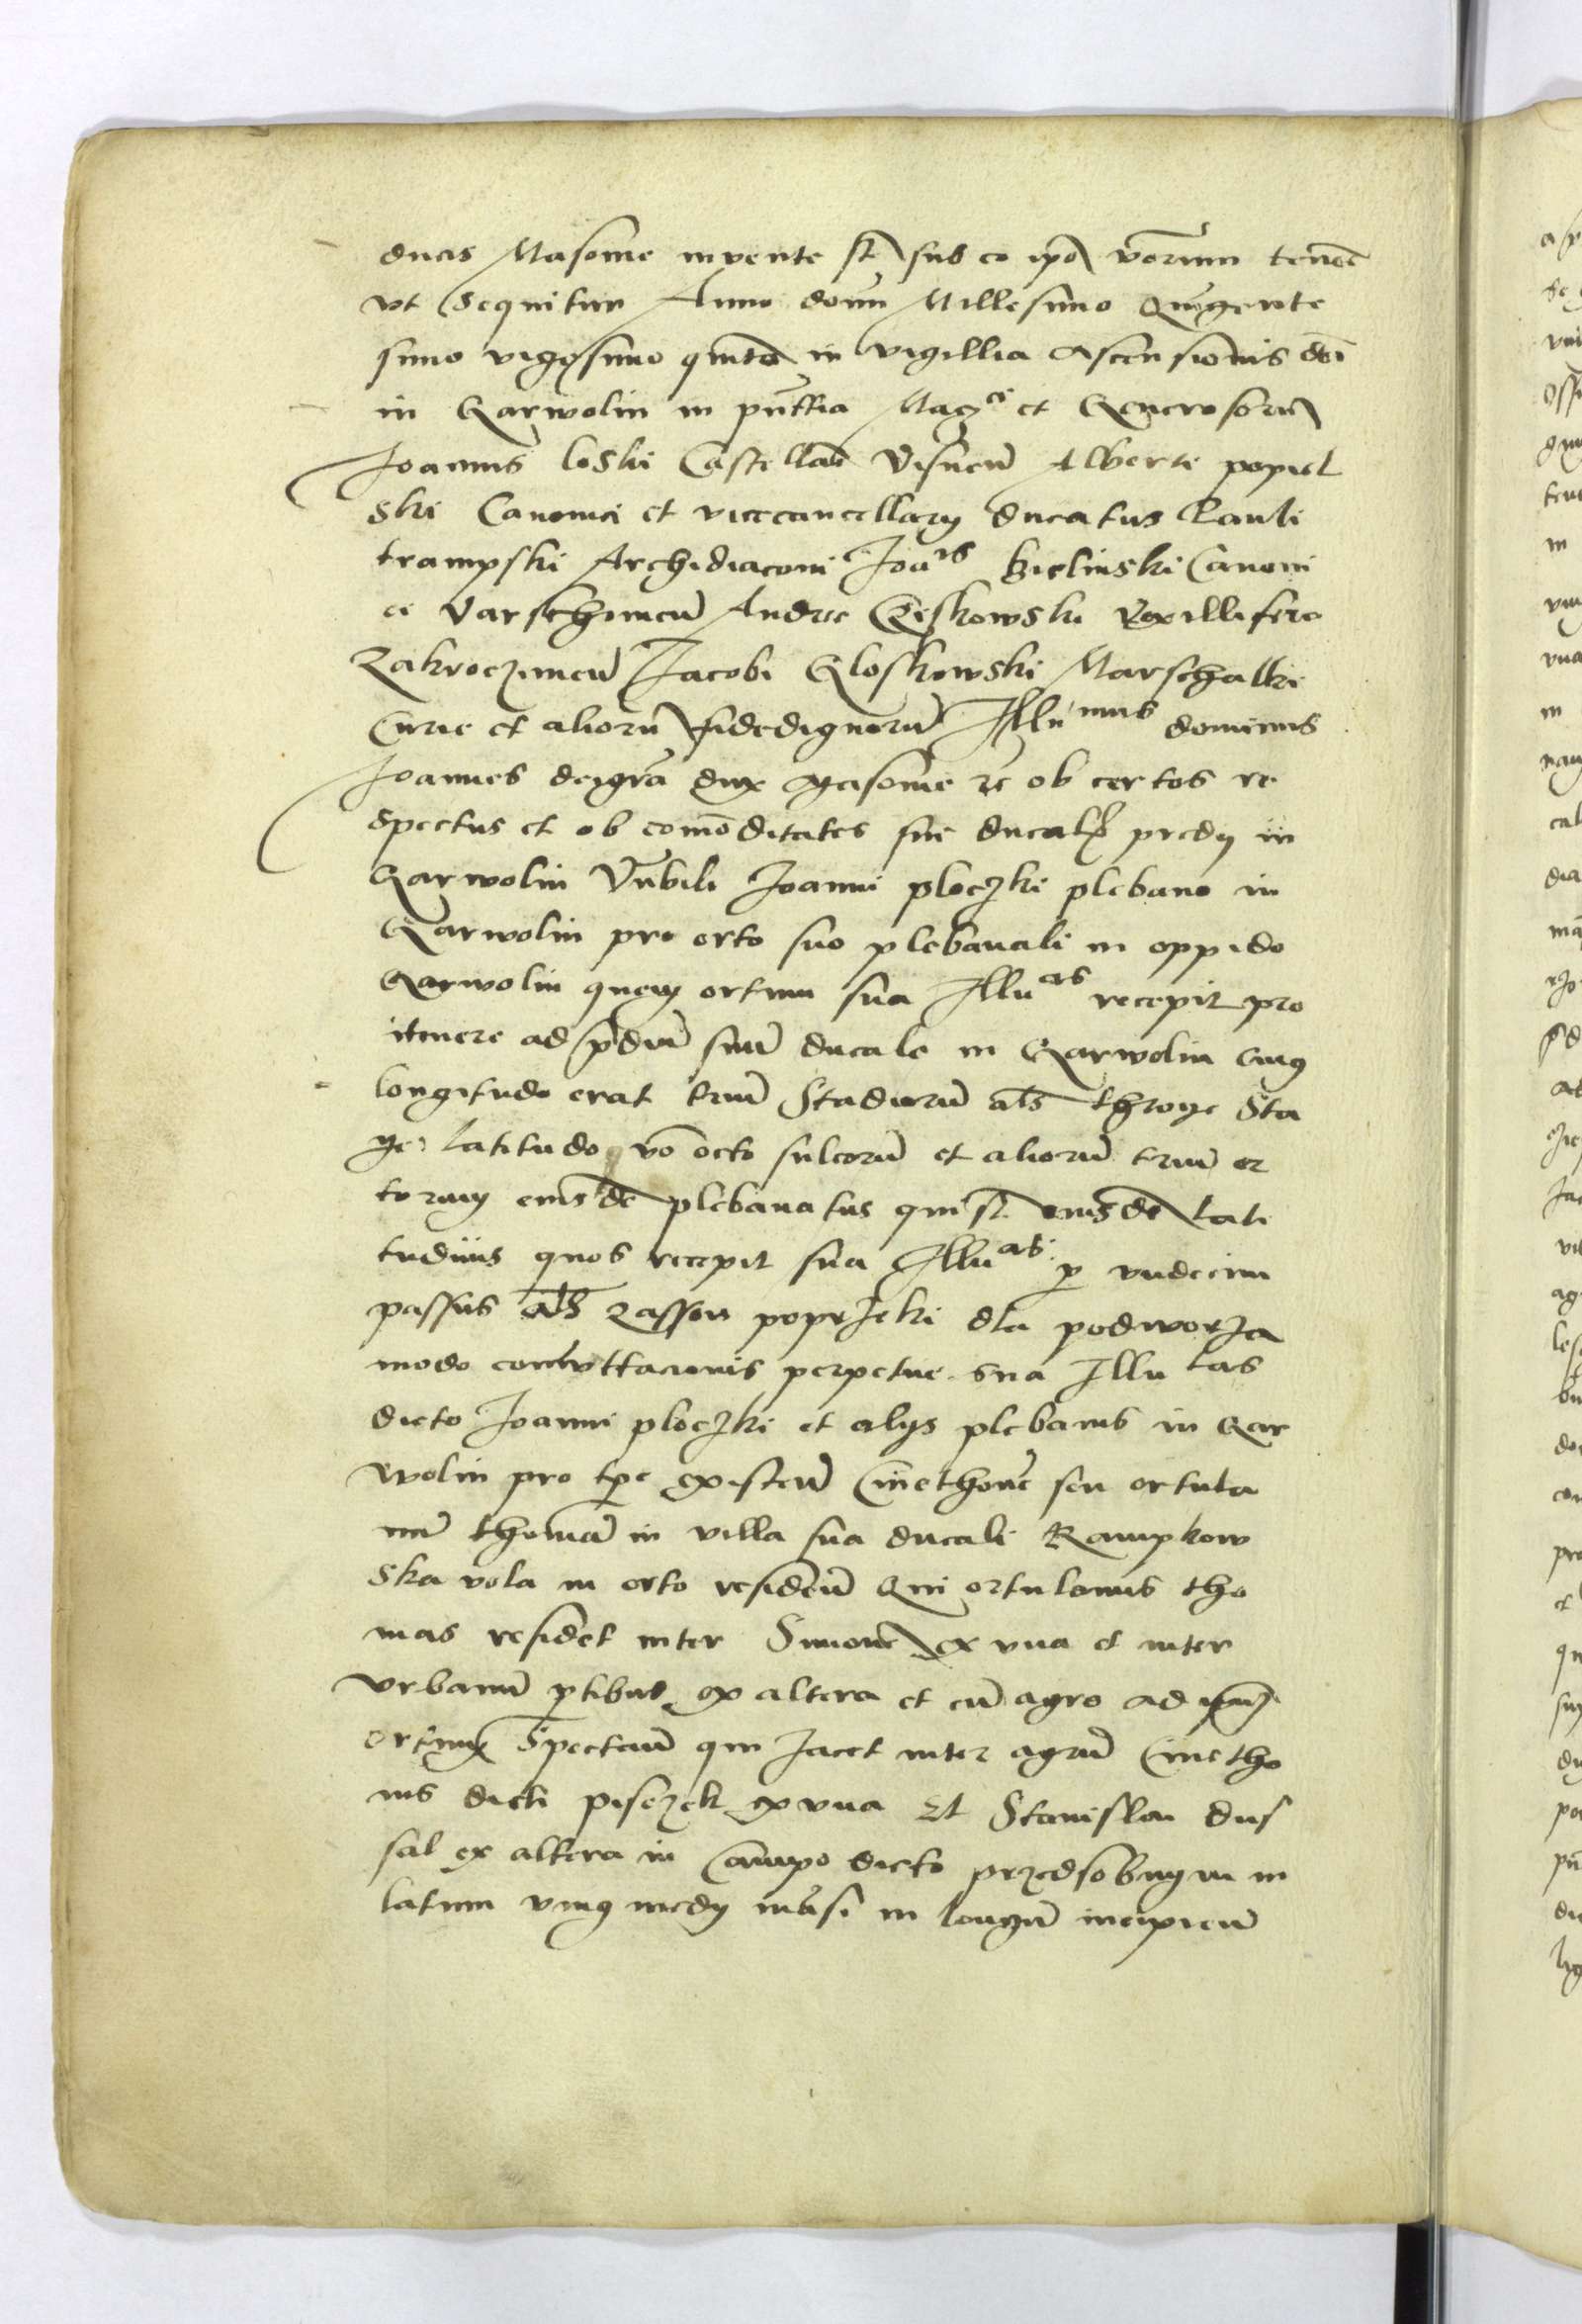 ducis Masouie inuente st sub eo ipo verum tenoē
vt Sequitur Anno domī Millesimo Quīgente
simo vigesimo quinto in vigillia Ascensionis dōi
in Garwolin in pn̄ttia Magci et Generosorū
Joannis loski Castellāi Visneñ Alberti popiel
ski Canonici et vicecancellarij ducatus Pauli
trampski Archidiaconi Joāis Bielinski Canoni
ci Varschimeñ Andree Czeskowski Vexilliferi
Zakroczimeñ Jacobi Gloskowski Marschalki
Curie et aliorū fidedignorū Illumus dominus
Joannes dei grā dux Masouie zc ob certos re
spectus et ob comoditates sue ducalis predij in
Garwolin Vn̄bili Joanni ploczki plebano in
Garwolin pro orto suo plebanali in oppido
Garwolin quem ortum sua Illuas recepit pro
itinere ad pdiū suū ducale in Garwolin cuius
longitudo erat triū Stadiorū als throye Sta
ye latitudo vo octo sulcorū et aliorū triū or
torum eiusdē plebanatus qui st eiusdē lati
tudinis quos recepit sua Illuas p vndecim
passus als zasson poprzeki dla podworza
modo comuttacionis perpetue sua Illu tas
dicto Joanni ploczki et alijs plebanis in Gar
wolin pro tpe existeñ Cmethonē seu ortula
nū thomā in villa sua ducali Rampkow
ska vola in orto resideñ Qui ortulanus tho
mas residet inter Simonē ex vna et inter
vrbanū ptibus ex altera et cū agro ad ipm
ortum Spectañ qui Jacet inter agrū Cmetho
nis dicti pisczek ex vna Et Stanislai dus
sal ex altera in Campo dicto przedsobnym in
latum vnius medij māsi in longū incipieñ